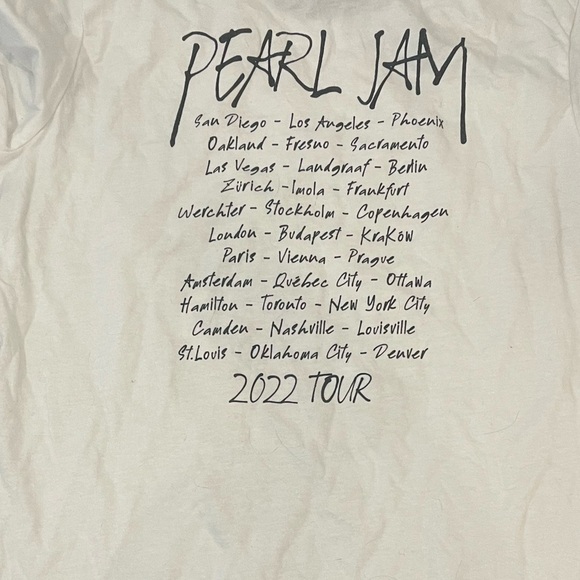 PEARL JAM
San Diego - Los Angeles - Phoenix
Oakland - Fresno - Sacramento
Las Vegas - Landgraaf - Berlin
Zürich - Imola - Frankfurt
Werchter - Stockholm - Copenhagen
London - Budapest - Kraków
Paris - Vienna - Prague
Amsterdam - Québec City - Ottawa
Hamilton - Toronto - New York City
Camden - Nashville - Louisville
St.Louis - Oklahoma City - Denver
2022 TOUR